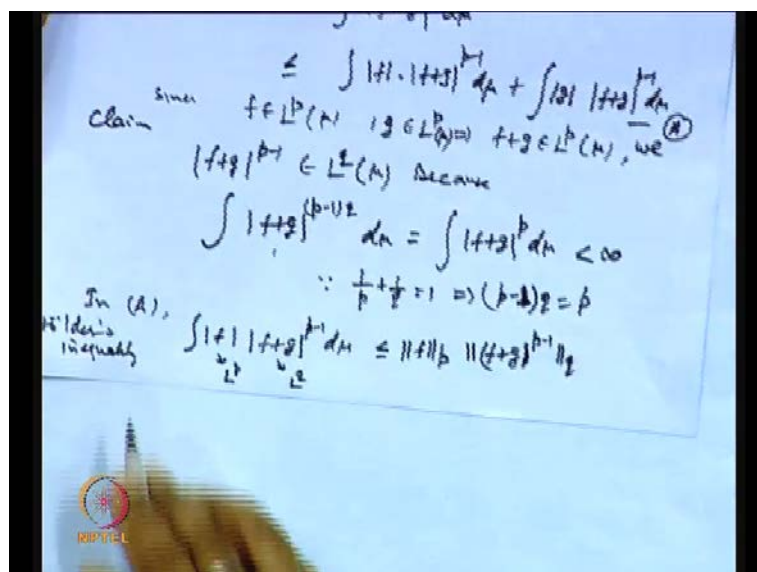 ≤ ∫ |f| · |f+g|^{p-1} dμ + ∫ |g| |f+g|^{p-1} dμ — (A)
Claim Since f ∈ L^p(μ), g ∈ L^p(μ) ⇒ f+g ∈ L^p(μ), we
|f+g|^{p-1} ∈ L^q(μ) Because
∫ |f+g|^{(p-1)q} dμ = ∫ |f+g|^p dμ < ∞
∵ 1/p + 1/q = 1 ⇒ (p-1)q = p
In (A),
Hölder's inequality ∫ |f| |f+g|^{p-1} dμ ≤ ||f||_p ||(f+g)^{p-1}||_q
L^p L^q
NPTEL